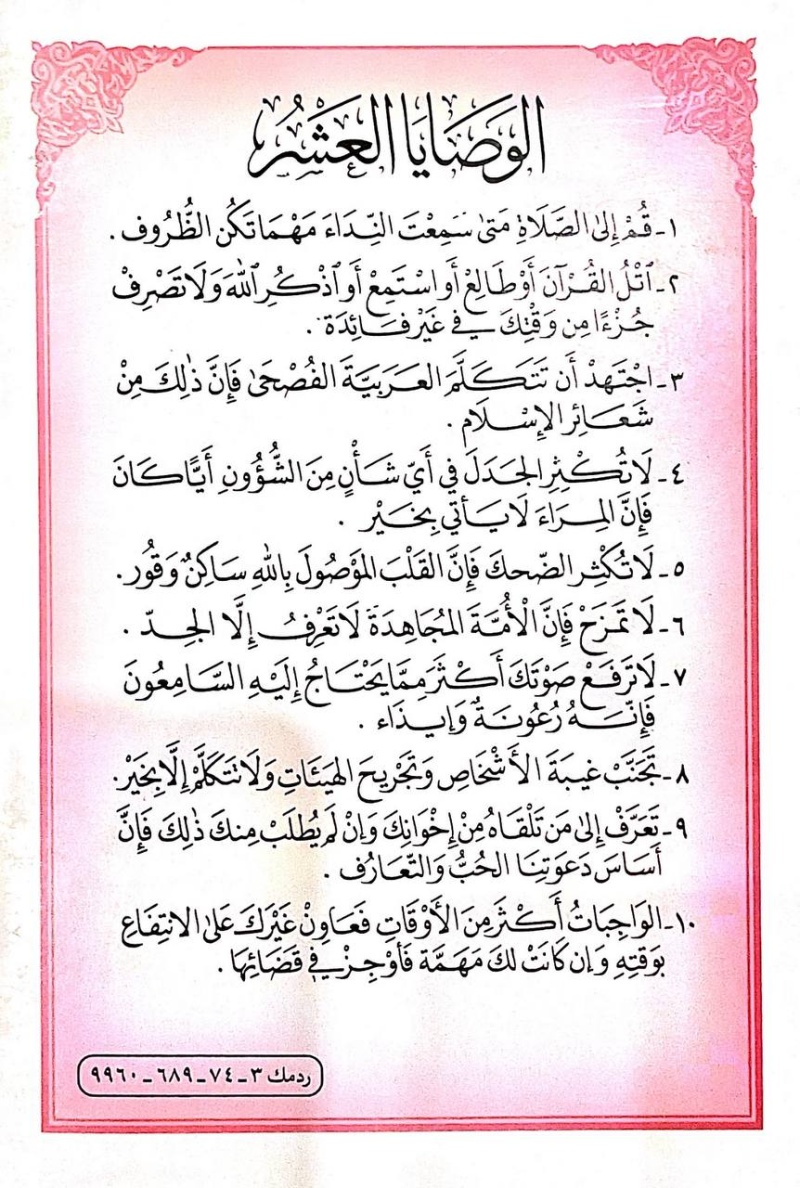 الوَصَايَا العَشْرُ
١ـ قُمْ إِلىٰ الصَّلَاةِ مَتىٰ سَمِعْتَ النِّدَاءَ مَهْمَا تَكُن الظُّرُوف .
٢ـ ٱتْلُ القُرْآنَ أَوْ طَالِعْ أَو اسْتَمِعْ أَو ٱذْكُرِ ٱللَّهَ وَلَا تَصْرِفْ
جُزْءًا مِن وَقْتِكَ فِي غَيْرِ فَائِدَة .
٣ـ اجْتَهِدْ أَن تَتَكَلَّمَ العَرَبِيَّةَ الفُصْحَىٰ فَإِنَّ ذٰلِكَ مِنْ
شَعَائِرِ الإِسْلَام .
٤ـ لَا تُكْثِرِ الجَدَلَ فِي أَيِّ شَأْنٍ مِنَ الشُّؤُونِ أَيًّا كَانَ
فَإِنَّ المِرَاءَ لَا يَأْتي بِخَيْرٍ .
٥ـ لَا تُكْثِرِ الضّحكَ فَإِنَّ القَلْبَ المَوْصُولَ بِاللَّهِ سَاكِنٌ وَقُور.
٦ـ لَا تَمْزَحْ فَإِنَّ الْأُمَّةَ المُجَاهِدَةَ لَا تَعْرِفُ إِلَّا الجِدّ .
٧ـ لَا تَرفَعْ صَوْتَكَ أَكْثَرَ مِمَّا يَحْتَاجُ إِلَيْهِ السَّامِعُونَ
فَإِنَّهُ رُعُونَةٌ وَإِيذَاء .
٨ـ تَجَنَّبْ غيبَةَ الأَشْخَاصِ وَتَجْرِيحَ الهَيْئَاتِ وَلَا تَتَكَلَّمْ إِلَّا بِخَيْرٍ.
٩ـ تَعَرَّفْ إِلىٰ مَن تَلْقَاهُ مِنْ إِخْوَانِكَ وَإِنْ لَمْ يُطْلَبْ مِنكَ ذٰلِكَ فَإِنَّ
أَسَاسَ دَعَوتِنَا الحُبُّ وَالتَّعَارُف .
١٠ـ الوَاجِبَاتُ أَكْثَرُ مِنَ الأَوْقَاتِ فَعَاوِنْ غَيْرَكَ عَلىٰ الانتِفَاعِ
بِوَقْتِهِ وَإِن كَانَتْ لَكَ مَهَمَّة فَأَوْجِزْ فِي قَضَائِهَا .
ردمك ٣ـ ٧٤ـ ٦٨٩ ـ ٩٩٦٠